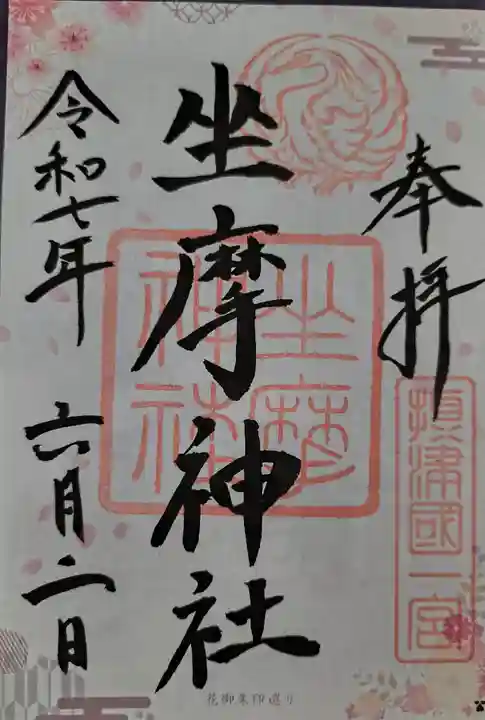 奉拝
摂津國一宮
坐摩神社
坐摩神社
令和七年 六月二日
花御朱印巡り